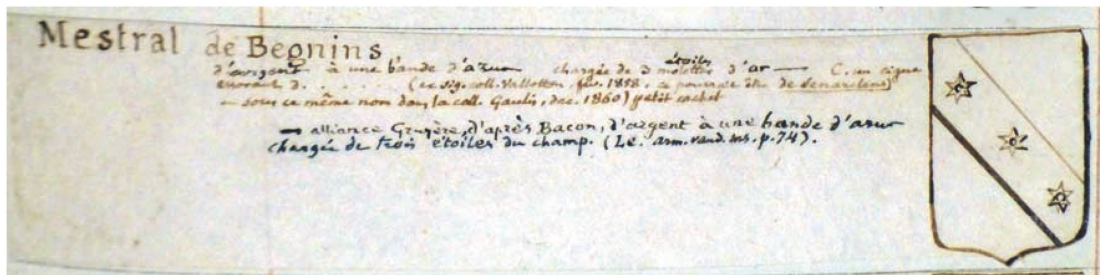 Mestral de Begnins
étoiles
d'argent à une bande d'azur chargée de 3 molettes d'or — C. un cigne
essorant d. . . . . (ex sig. coll. Vallotton, fév. 1858, ce pourrait être de Senarclens)
— sous ce même nom dans la coll. Gaulis, dec. 1860) petit cachet
— alliance Gruyère, d'après Bacon, d'argent à une bande d'azur
chargée de trois étoiles du champ. (Le. arm. vaud. ms. p. 74).